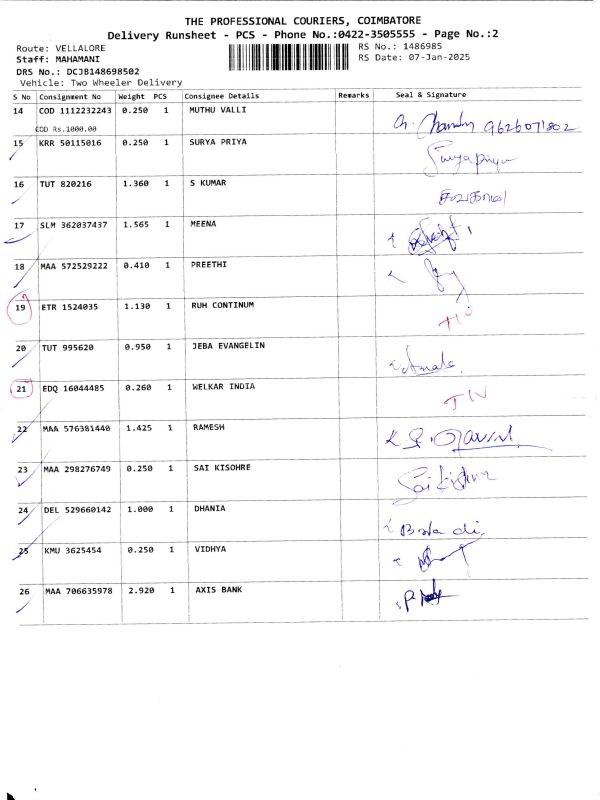 THE PROFESSIONAL COURIERS, COIMBATORE
Delivery Runsheet - PCS - Phone No.:0422-3505555 - Page No.:2
Route: VELLALORE
Staff: MAHAMANI
DRS No.: DCJB148698502
Vehicle: Two Wheeler Delivery
RS No.: 1486985
RS Date: 07-Jan-2025
S No Consignment No Weight PCS Consignee Details Remarks Seal & Signature
14 COD 1112232243 0.250 1 MUTHU VALLI
COD Rs.1000.00
9626071802
15 KRR 50115016 0.250 1 SURYA PRIYA Suryapriya
16 TUT 820216 1.360 1 S KUMAR
17 SLM 362037437 1.565 1 MEENA
18 MAA 572529222 0.410 1 PREETHI
19 ETR 1524035 1.130 1 RUH CONTINUM
20 TUT 995620 0.950 1 JEBA EVANGELIN
21 EDQ 16044485 0.260 1 WELKAR INDIA IN
22 MAA 576381440 1.425 1 RAMESH
23 MAA 298276749 0.250 1 SAI KISOHRE Sai Kishore
24 DEL 529660142 1.000 1 DHANIA
25 KMU 3625454 0.250 1 VIDHYA
26 MAA 706635978 2.920 1 AXIS BANK